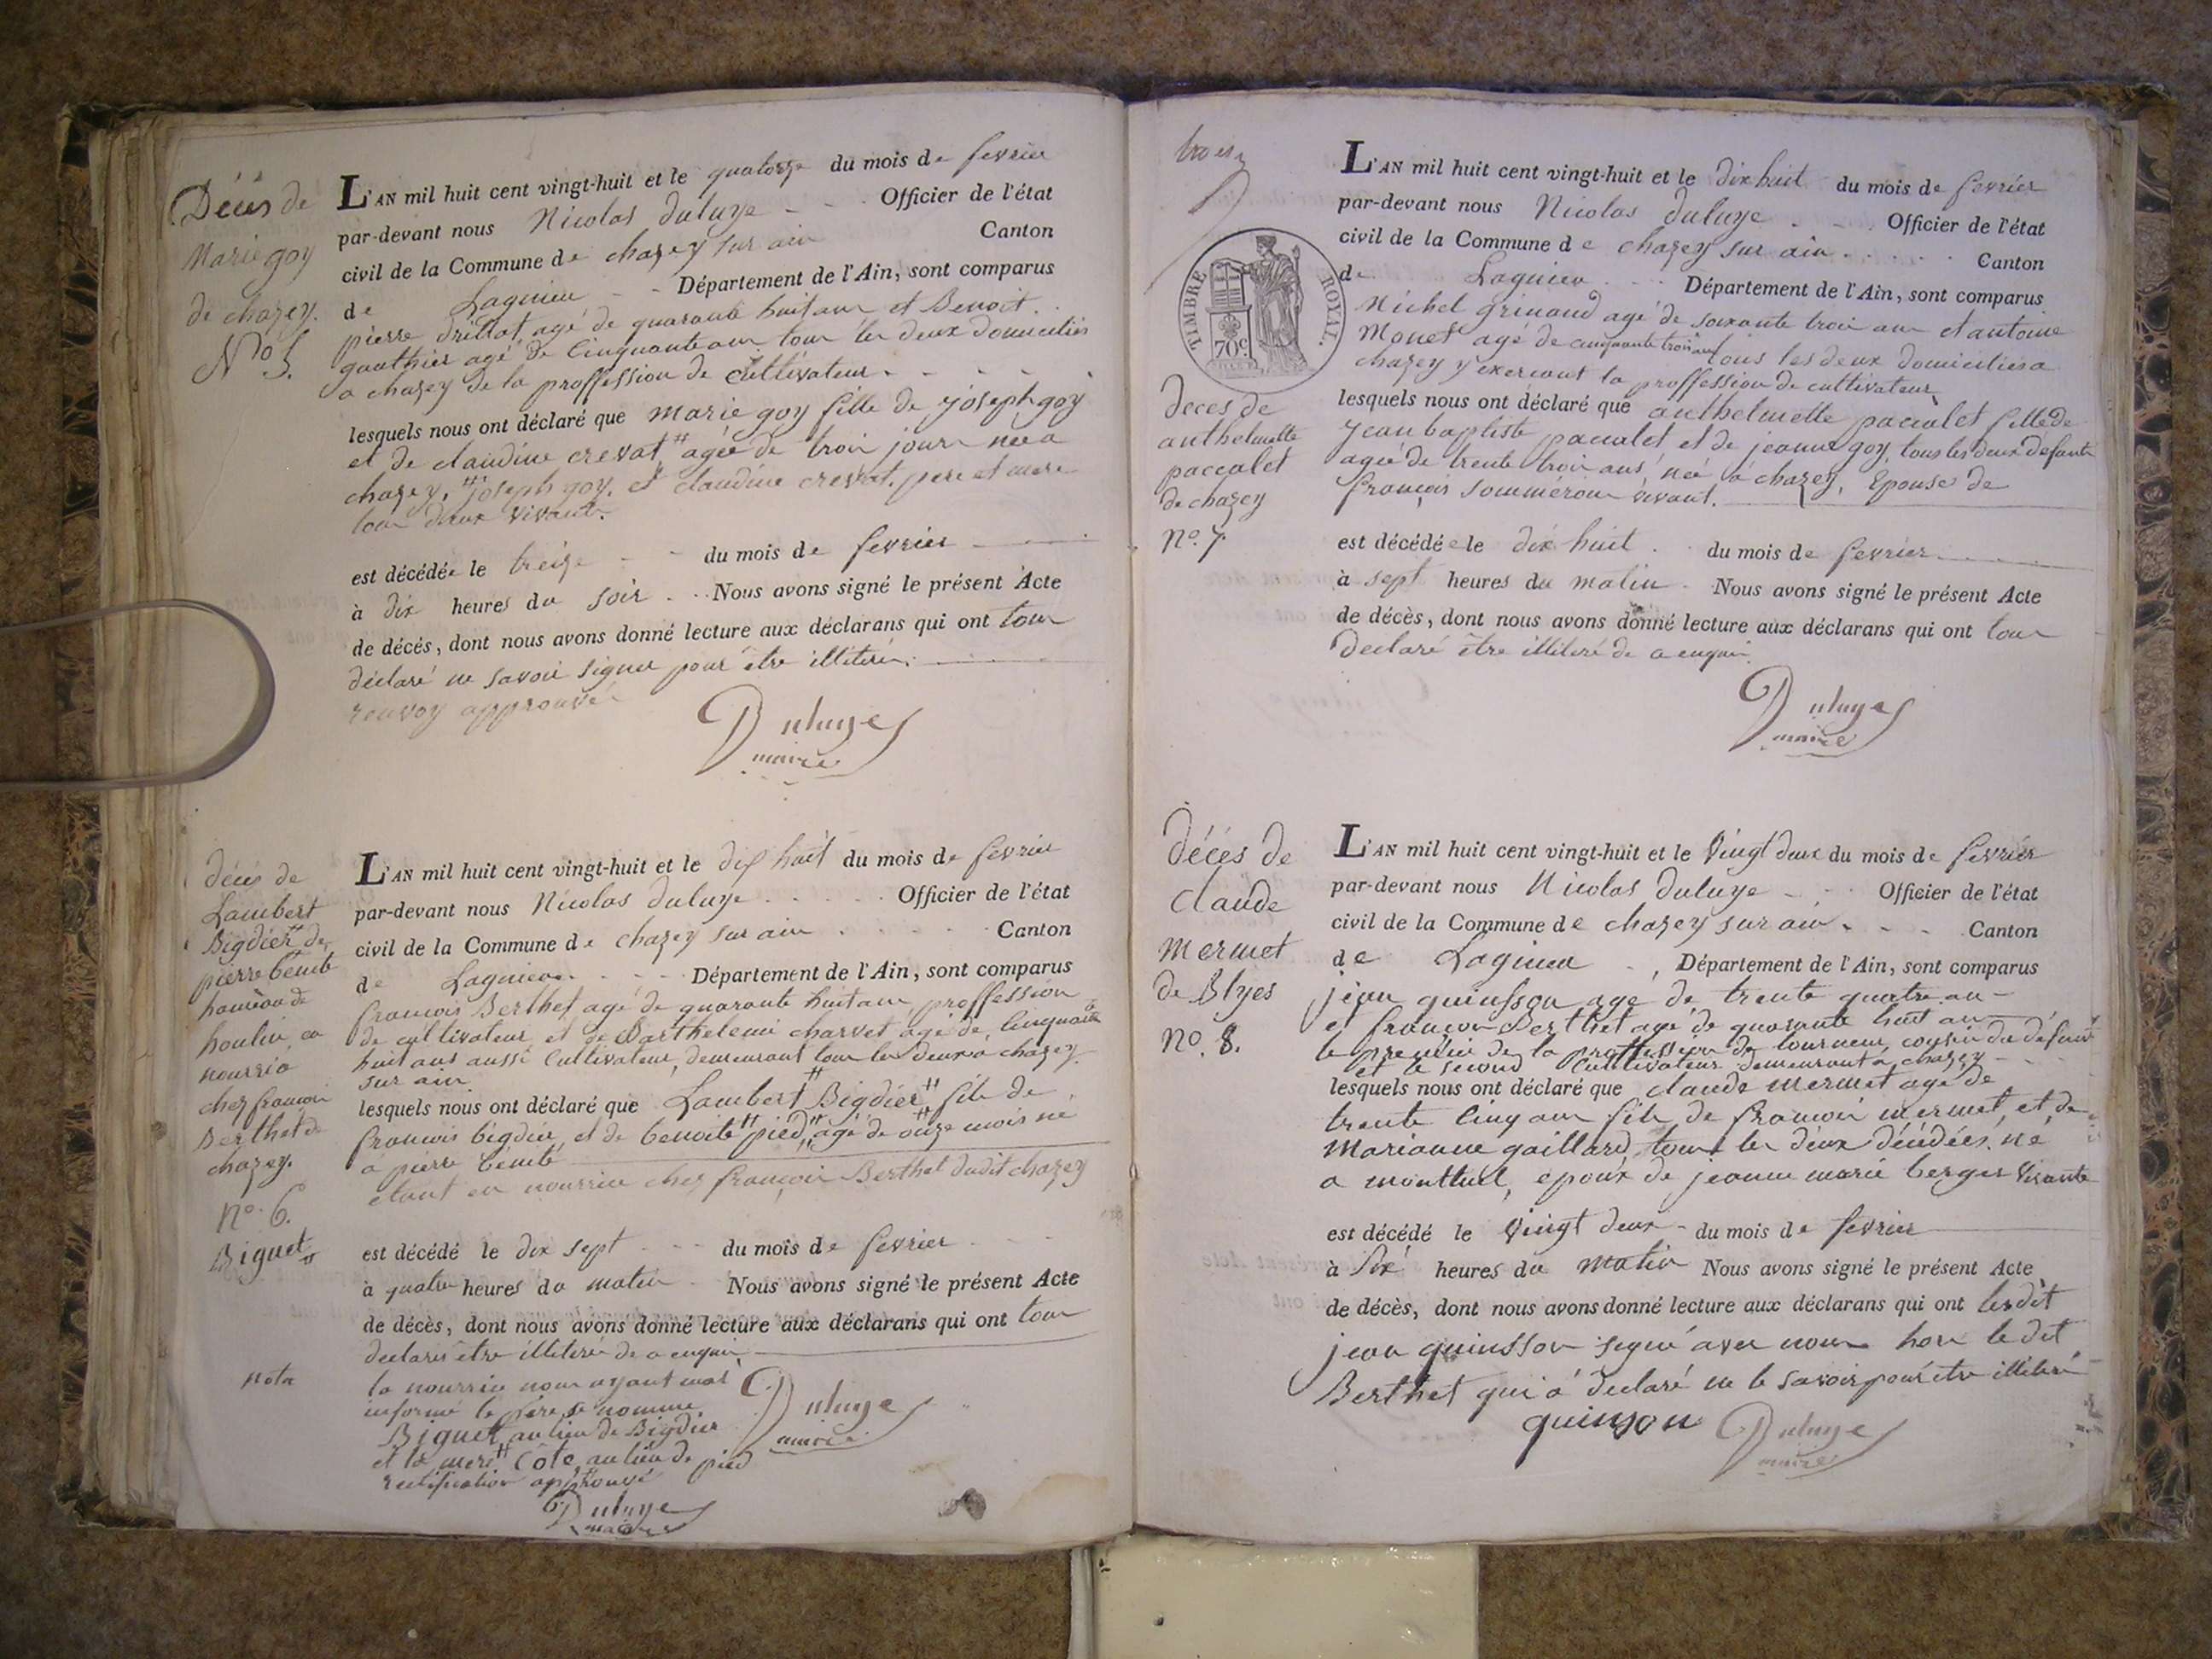 Décès de
Marie goy
de chazey.
No 5.
L'AN mil huit cent vingt-huit et le quatorze du mois de fevrier
par-devant nous Nicolas duluye Officier de l'état
civil de la Commune de chazey sur ain Canton
de Lagnieu Département de l'Ain, sont comparus
pierre drillot agé de quarante huit ans et Benoit
gauthier agé de Cinquante ans tous les deux domiciliés
a chazey de la proffession de cultivateur.
lesquels nous ont déclaré que marie goy fille de joseph goy
et de claudine crevat # agée de trois jours née a
chazey. # joseph goy. et claudine crevat. pere et mere
tous deux vivants.
est décédée le treize du mois de fevrier
à dix heures du soir. Nous avons signé le présent Acte
de décés, dont nous avons donné lecture aux déclarans qui ont tous
déclaré ne savoir signer pour être illiterés.
renvoy approuvé
Duluye
maire
décès de
Lambert
Bigdier # de
pierre benite
hameau de
houlin, en
nourri a
chez francois
Berthet de
chazey.
No. 6.
Biguet #
L'AN mil huit cent vingt-huit et le dix huit du mois de fevrier
par-devant nous Nicolas duluye Officier de l'état
civil de la Commune de chazey sur ain Canton
de Lagnieu Département de l'Ain, sont comparus
francois Berthet agé de quarante huit ans proffession
de cultivateur et de Barthelemi charvet agé de Cinquante
huit ans aussi Cultivateur, demeurant tous les deux a chazey
sur ain
lesquels nous ont déclaré que Lambert Bigdier # fils de
francois bigdier et de benoite pied # agé de onze mois né
à pierre bénite
etant en nourrice chez françois Berthet dudit chazey
est décédé le dix sept du mois de fevrier
à quatre heures du matin Nous avons signé le présent Acte
de décès, dont nous avons donné lecture aux déclarans qui ont tous
declarés être illiterés de ce enquis
nota
la nourrice nous ayant mal
informé le pere se nomme
Biguet au lieu de Bigdier
et la mere # Côte au lieu de pied
rectification approuvé
Duluye
maire
Duluye
maire
TIMBRE ROYAL.
70c.
deces de
anthelmette
paccalet
de chazey
No. 7.
L'AN mil huit cent vingt-huit et le dix huit du mois de fevrier
par-devant nous Nicolas duluye Officier de l'état
civil de la Commune de chazey sur ain Canton
de Lagnieu Département de l'Ain, sont comparus
Michel grinand agé de soixante trois ans et antoine
Monet agé de cinquante trois ans tous les deux domiciliés a
chazey y exercant la proffession de cultivateur
lesquels nous ont déclaré que anthelmette paccalet fille de
jean baptiste paccalet et de jeanne goy, tous les deux defunts
agée de trente trois ans, née à chazey, Epouse de
françois sommeron vivant.
est décédée le dix huit du mois de fevrier
à sept heures du matin Nous avons signé le présent Acte
de décès, dont nous avons donné lecture aux déclarans qui ont tous
declaré être illiteré de ce enquis
Duluye
maire
décés de
claude
mermet
de Blyes
No. 8.
L'AN mil huit cent vingt-huit et le Vingt deux du mois de fevrier
par-devant nous Nicolas duluye Officier de l'état
civil de la Commune de chazey sur ain Canton
de Lagnieu Département de l'Ain, sont comparus
jean quinsson agé de trente quatre ans
et françois Berthet agé de quarante huit ans
le premier de la proffession de tourneur, cousin du défunt
et le second Cultivateur demeurant à chazey
lesquels nous ont déclaré que claude mermet agé de
trente Cinq ans fils de francois mermet, et de
Marianne gaillard, tous les deux décédés, né
a montluel, epoux de jeanne marie berger vivante
est décédé le vingt deux du mois de fevrier
à Six heures du matin Nous avons signé le présent Acte
de décès, dont nous avons donné lecture aux déclarans qui ont lesdit
jean quinsson signé avec nous hors le dit
Berthet qui a declaré ne le savoir pour être illiteré
quinson Duluye
maire